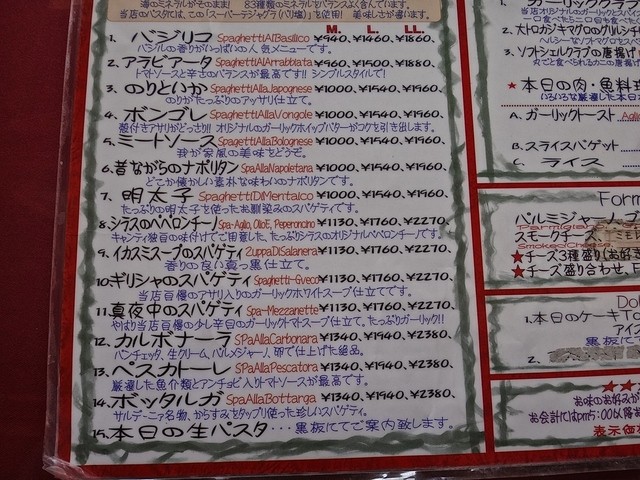 海のミネラルがそのまま! 83種類のミネラルをバランス良く含んでいます。
当店のパスタには、この「スーパーラジャグラ(バリ塩)」を使用! 美味しさが違います。
M. L. LL.
1. バジリコ SpaghettiAlBasilico ¥940, ¥1460, ¥1860,
バジルの香りがいっぱいの人気メニューです。
2. アラビアータ SpaghettiAlArrabbiata ¥960, ¥1500, ¥1880,
トマトソースと辛さのバランスが最高です!! シンプルスタイルで!
3. のりといか SpaghettiAllaJapognese ¥1000, ¥1540, ¥1960,
のりがたっぷりのアッサリ仕立て。
4. ボンゴレ SpaghettiAllaVongole ¥1000, ¥1540, ¥1960,
殻付きアサリがどっさり!! オリジナルのガーリックホイップバターがコクを引き出します。
5. ミートソース SpagettiAllaBolognese ¥1000, ¥1540, ¥1960,
我が家風の美味をどうぞ。
6. 昔ながらのナポリタン SpaAllaNapoletana ¥1000, ¥1540, ¥1960,
どこか懐かしい素朴な味わいのナポリタンです。
7. 明太子 SpaghettiDiMentaico ¥1000, ¥1540, ¥1960
たっぷりの明太子を使ったお馴染みのスパゲティです。
8. シラスのペペロンチーノ Spa-Aglio, OlioE, Peperoncino ¥1130, ¥1760, ¥2270,
キャンティ独自の味付けでご用意した、たっぷりシラスのオリジナルペペロンチーノです。
9. イカスミスープのスパゲティ ZuppaDiSalanera ¥1130, ¥1760, ¥2270,
香りの良い真っ黒仕立て。
10. ギリシャのスパゲティ Spaghetti-Gveco ¥1130, ¥1760, ¥2270,
当店自慢のアサリ入りのガーリックホワイトスープ仕立てです。
11. 真夜中のスパゲティ Spa-Mezzanette ¥1130, ¥1760, ¥2270,
やはり当店自慢の少し辛目のガーリックトマトスープ仕立て。たっぷりガーリック!!
12. カルボナーラ SPaAllaCarbonara ¥1340, ¥1940, ¥2380,
パンチェッタ、生クリーム、パルメジャーノ、卵で仕上げた絶品。
13. ペスカトーレ SPaAllaPescatora ¥1340, ¥1940, ¥2380,
厳選した魚介類とアンチョビ入りトマトソースが最高です。
14. ボッタルガ SpaAllaBottarga ¥1340, ¥1940, ¥2380,
サルデーニァ名物、からすみをタップリ使った珍しいスパゲティ。
15. 本日の生パスタ・・・黒板にてご案内致します。
2. 大トロカジキマグロのグリルシチ
3. ソフトシェルクラブの唐揚げ
丸ごと食べられるカニの唐揚
★ 本日の肉・魚料理
いろいろな厳選した本日
A. ガーリックトースト Aglio
B. スライスバゲット
C. ライス
Form
パルミジャーノ、ゴ
Parmigiano
スモークチーズ
SmokedCheese
★チーズ3種盛り(お好
★チーズ盛り合わせ、
Do
1. 本日のケーキ To
アイ
黒板にて
2.
★★
お味のお好みが
お会計にはpm5:00以降お
表示価格